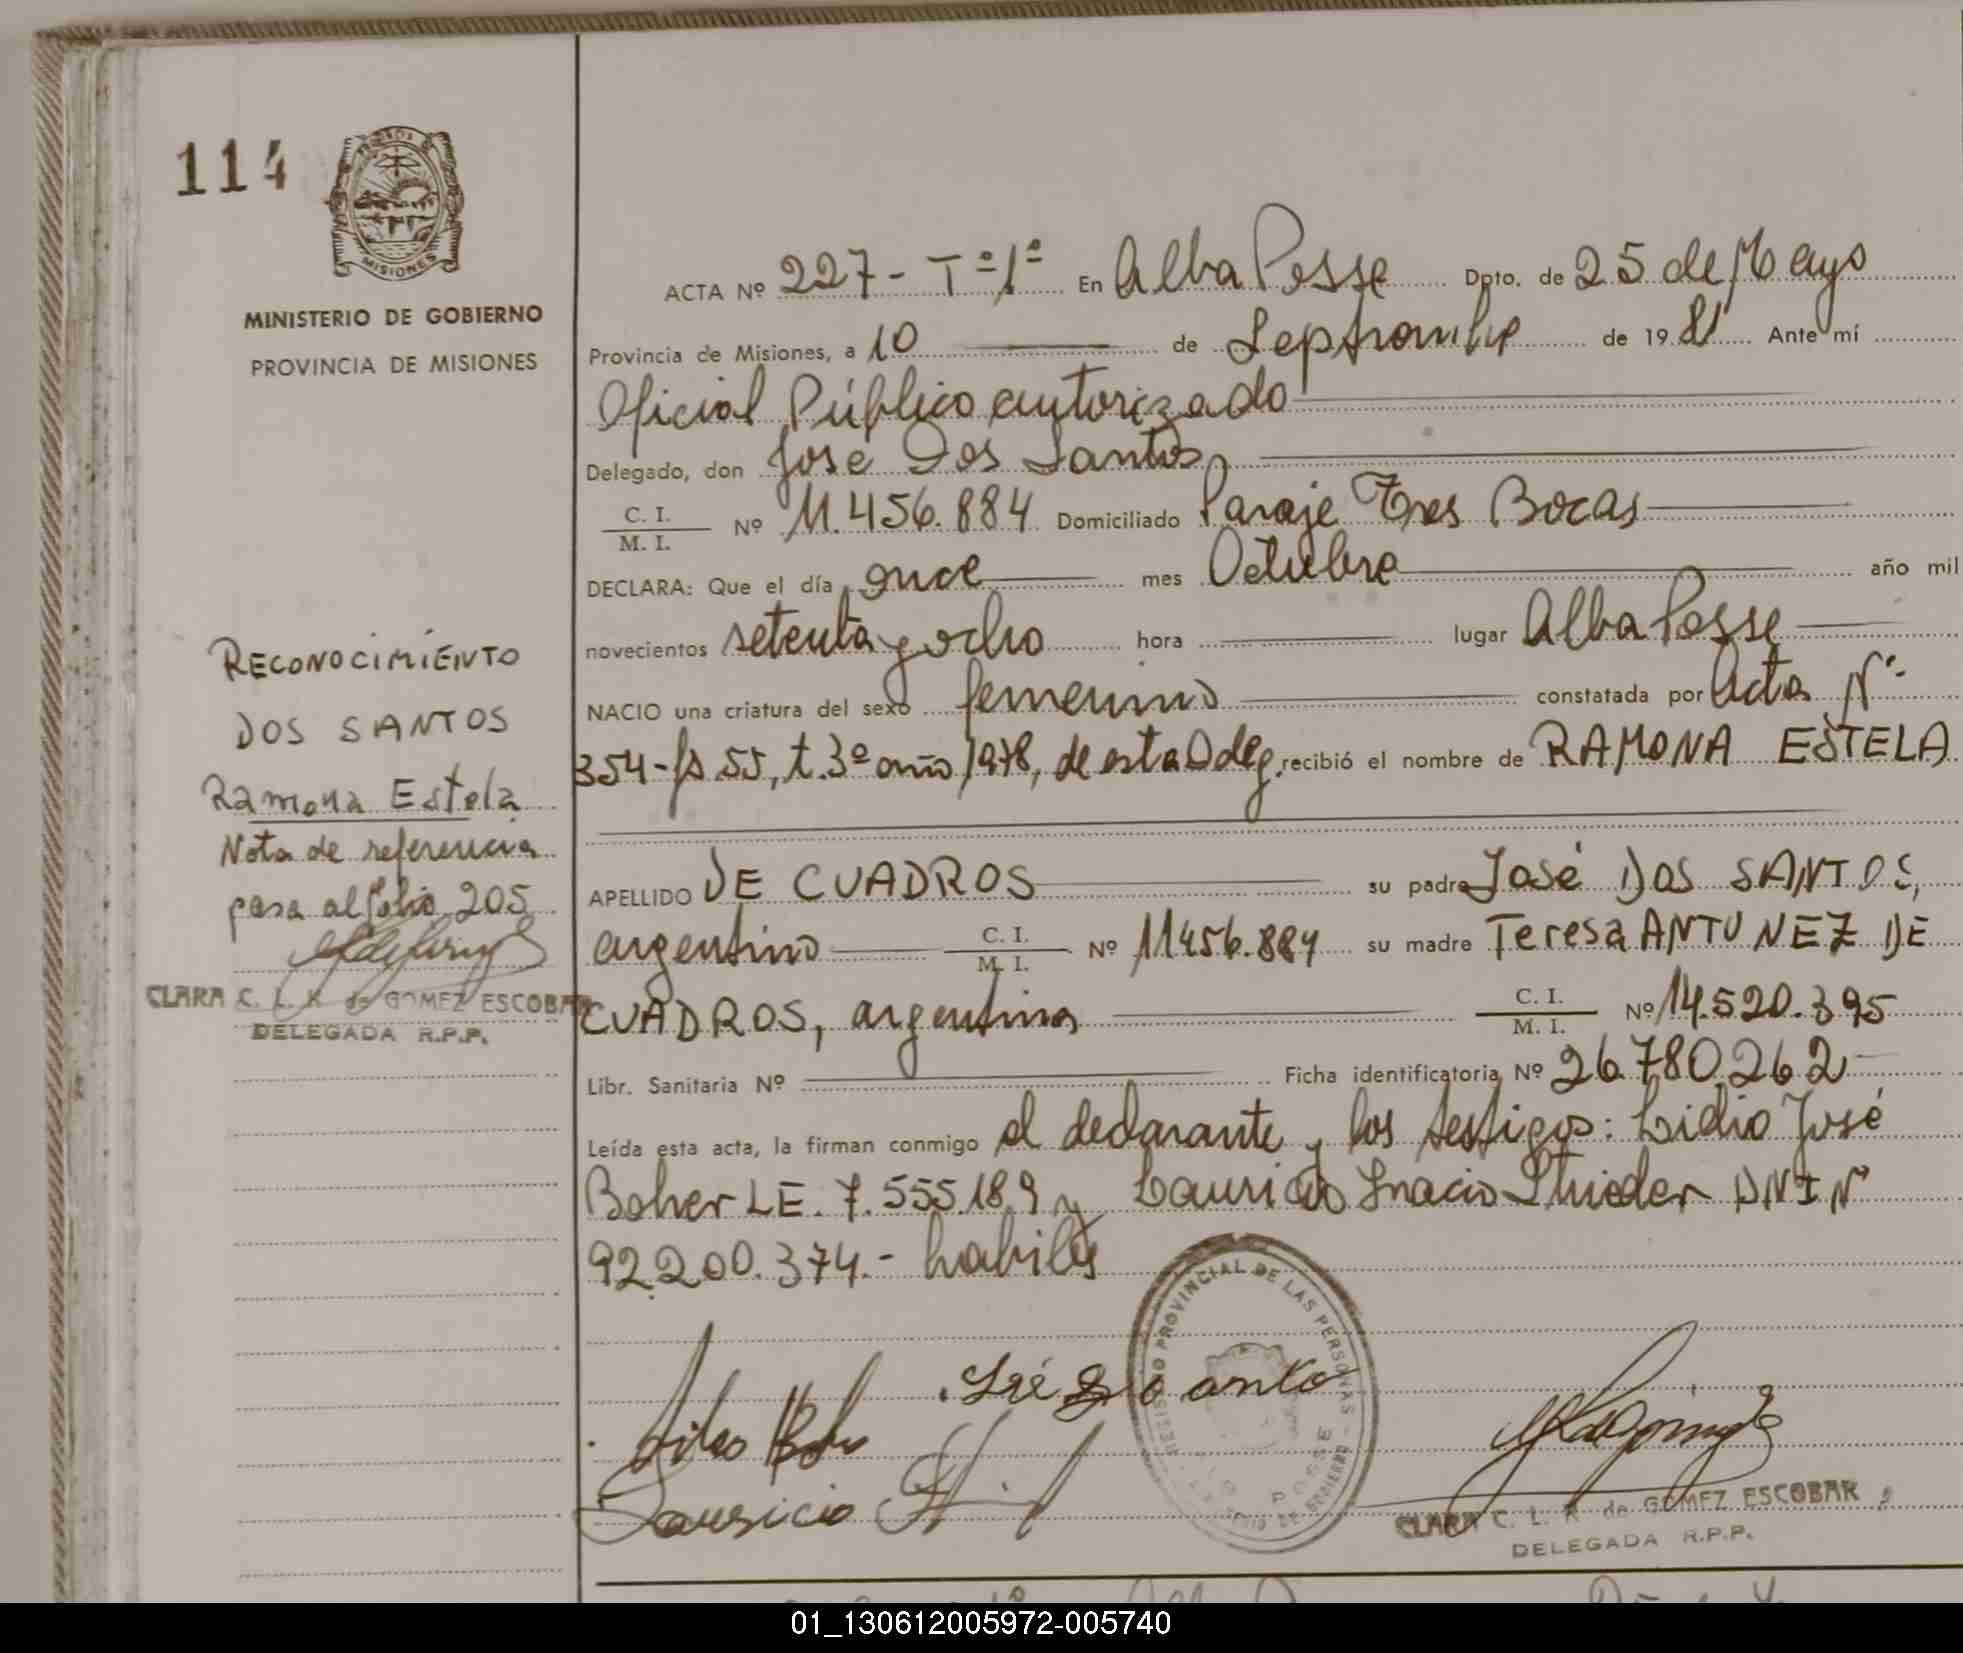 114
MISIONES
MINISTERIO DE GOBIERNO
PROVINCIA DE MISIONES
RECONOCIMIENTO
DOS SANTOS
Ramona Estela
Nota de referencia
pasa al folio 205
CLARA C. L. K. de GOMEZ ESCOBAR
DELEGADA R.P.P.
ACTA Nº 227 - Tº 1º En Alba Posse Dpto. de 25 de Mayo
Provincia de Misiones, a 10 de Septiembre de 1981 Ante mí
Oficial Público autorizado
Delegado, don Jose Dos Santos
C. I. / M. I. Nº 11.456.884 Domiciliado Paraje Tres Bocas
DECLARA: Que el día once mes Octubre año mil
novecientos setenta y ocho hora lugar Alba Posse
NACIO una criatura del sexo femenino constatada por Acta Nº
354 - fs 55, t. 3º año 1978, de esta Deleg. recibió el nombre de RAMONA ESTELA
APELLIDO DE CUADROS su padre José DOS SANTOS,
argentino C. I. / M. I. Nº 11456.884 su madre Teresa ANTUNEZ DE
CUADROS, argentina C. I. / M. I. Nº 14.520.395
Libr. Sanitaria Nº Ficha identificatoria Nº 26.780.262
Leída esta acta, la firman conmigo el declarante y los testigos: Lidio José
Boher LE. 7.555.189 y Lauricio Inacio Strieder DNI Nº
92.200.374.- habiles
REGISTRO PROVINCIAL DE LAS PERSONAS
POSSE
CLARA C. L. K. de GOMEZ ESCOBAR
DELEGADA R.P.P.
01_130612005972-005740